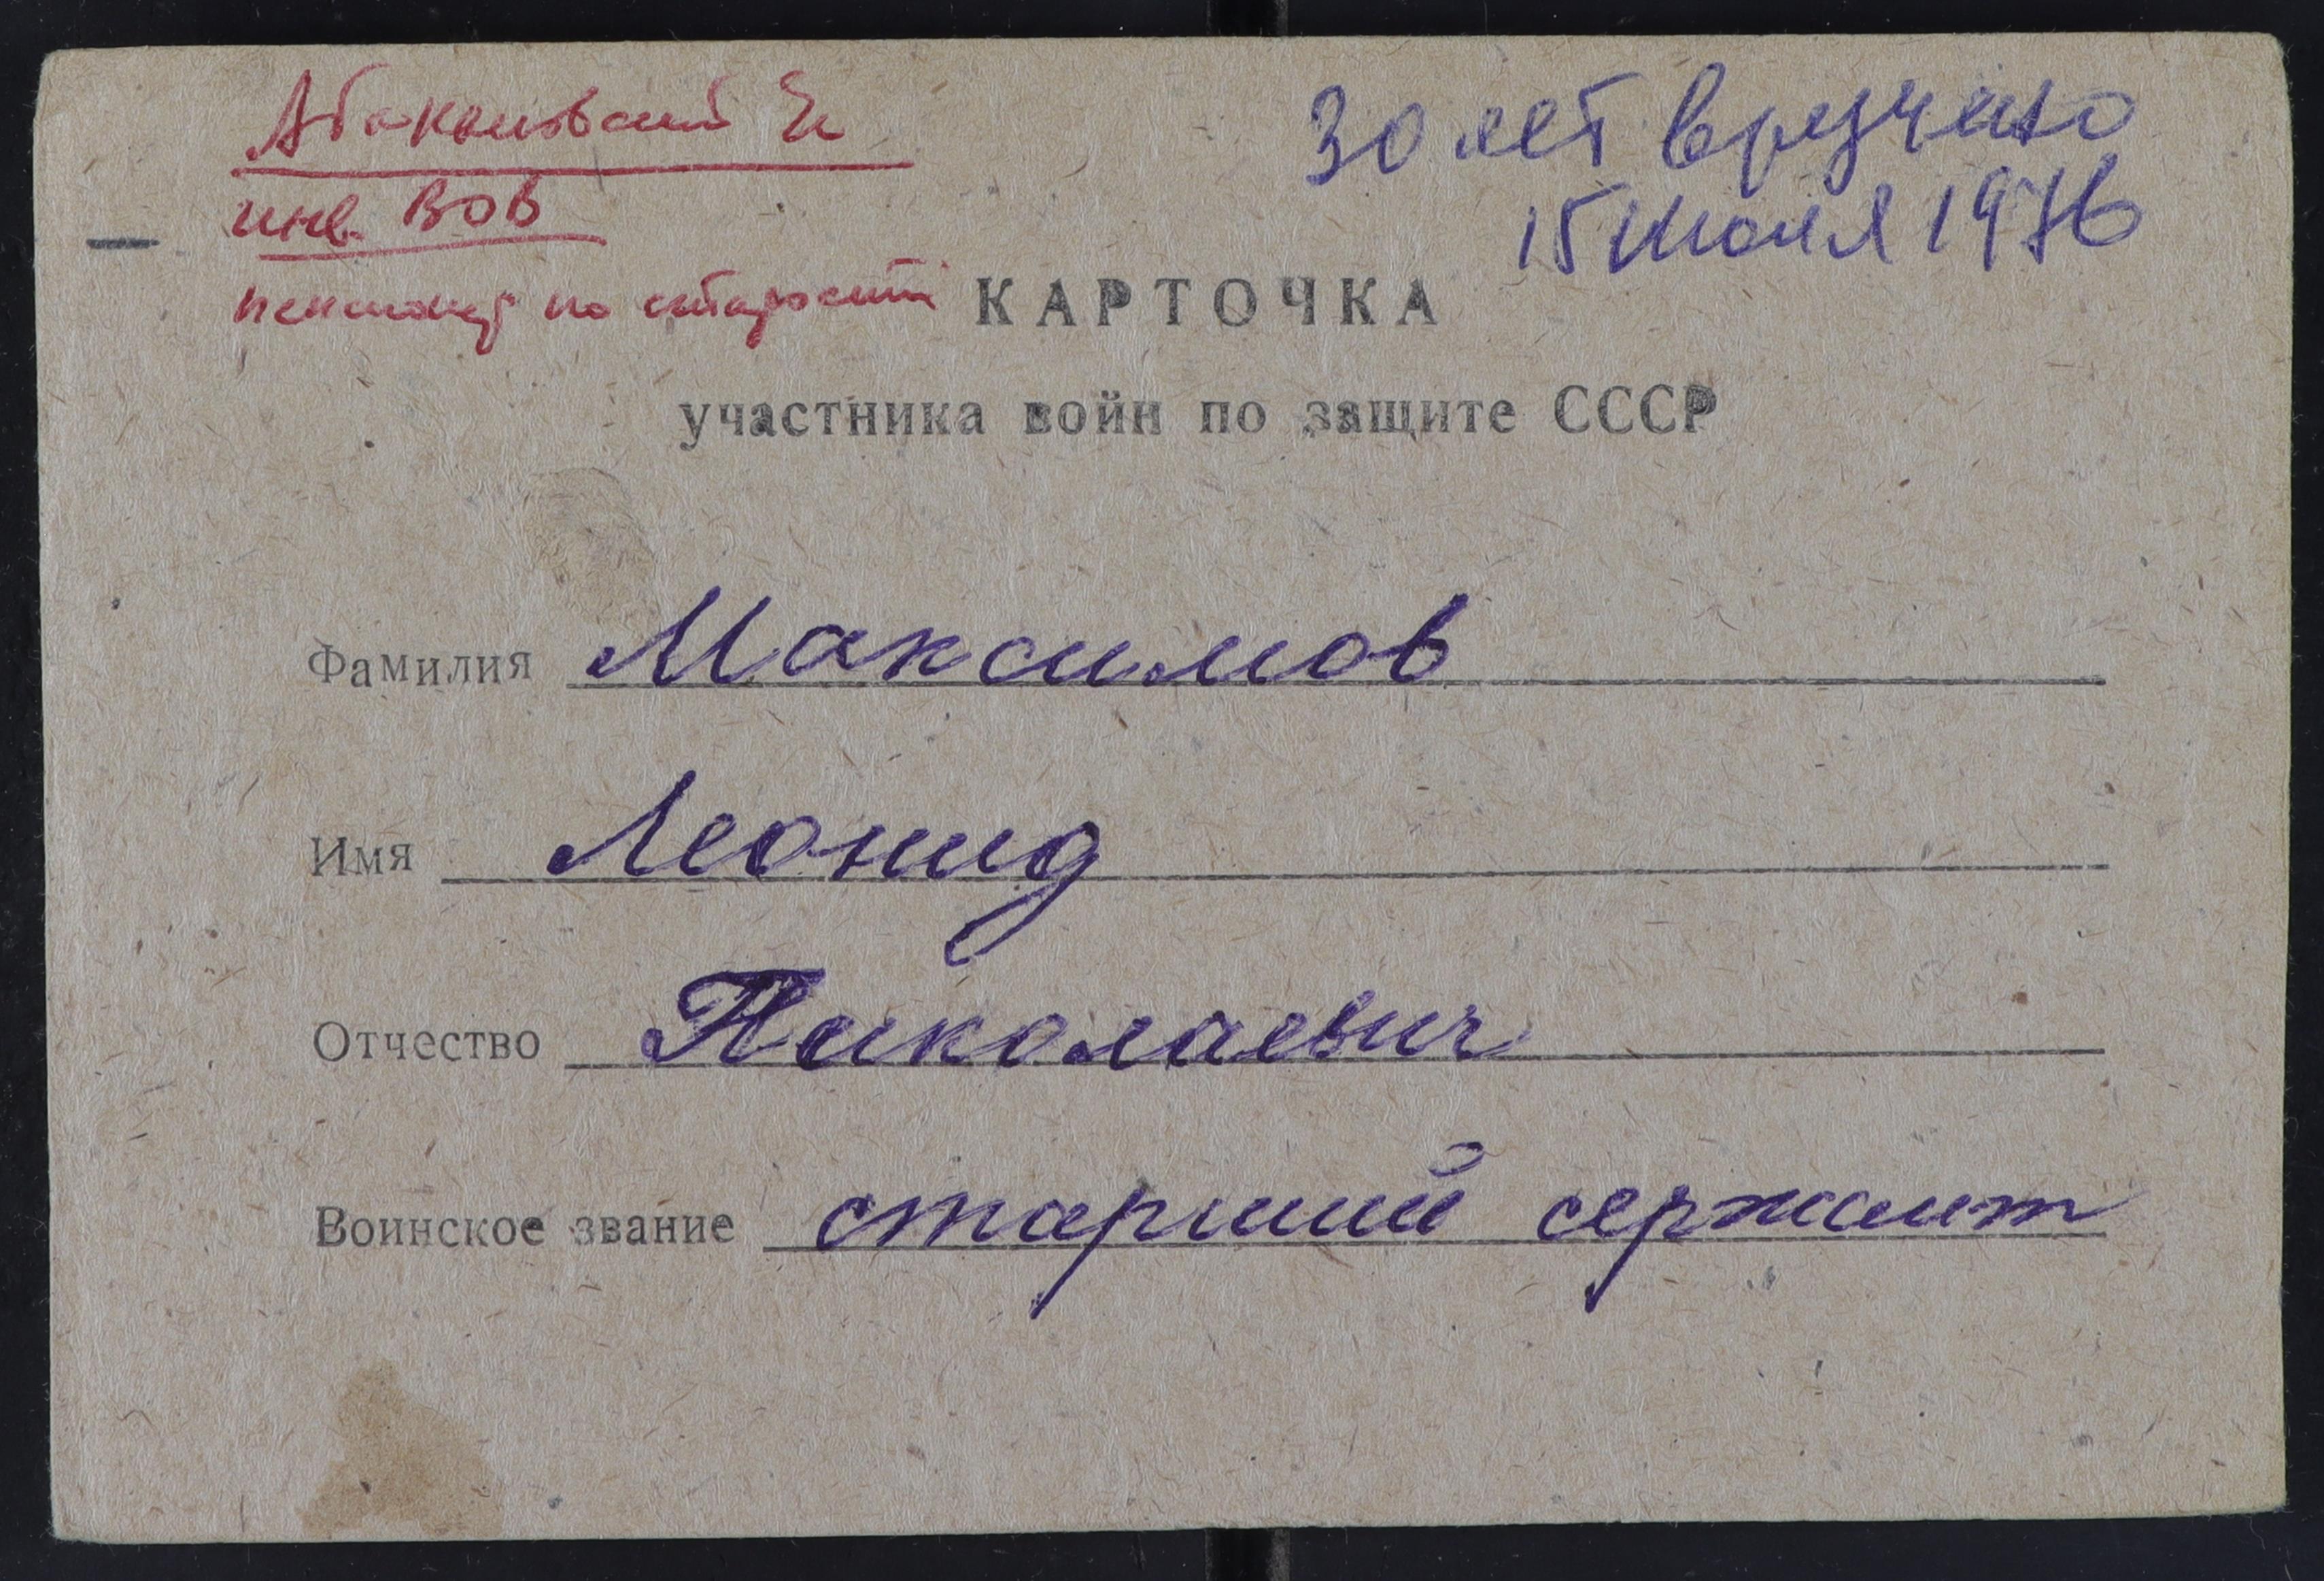 Абакановский
30 лет вручено
инв. ВОВ
15 июля 1976
пенсионер по старости
КАРТОЧКА
участника войн по защите СССР
Фамилия Максимов
Имя Леонид
Отчество Николаевич
Воинское звание старший сержант